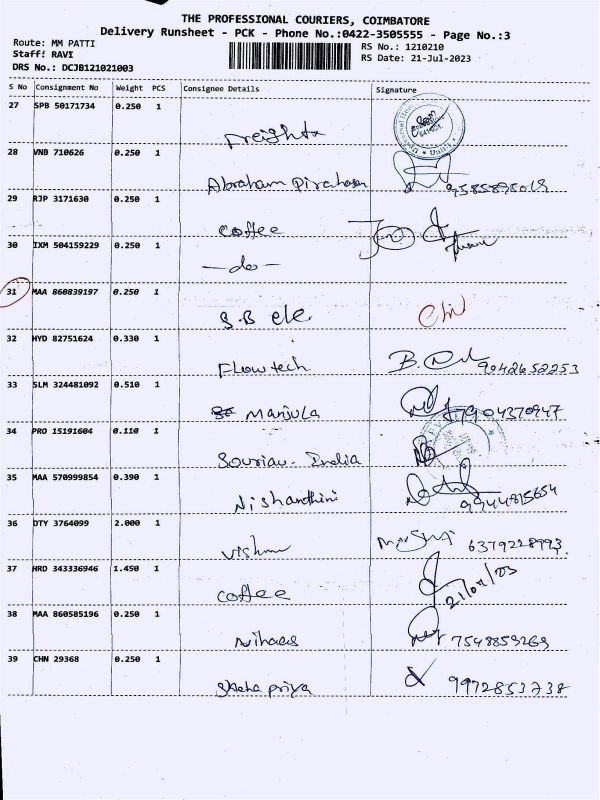 THE PROFESSIONAL COURIERS, COIMBATORE
Delivery Runsheet - PCK - Phone No.:0422-3505555 - Page No.:3
Route: MM PATTI
RS No.: 1210210
Staff: RAVI
RS Date: 21-Jul-2023
DRS No.: DCJB121021003
S No Consignment No Weight PCS Consignee Details Signature
27 SPB 50171734 0.250 1
Freight
28 VNB 710626 0.250 1
Abraham 9585895019
29 RJP 3171630 0.250 1
coffee
30 IXM 504159229 0.250 1
—do—
31 MAA 860839197 0.250 1
S.B ele.
32 HYD 82751624 0.330 1
Flowtech 9042652253
33 SLM 324481092 0.510 1
Manjula 7904370947
34 PRO 15191604 0.110 1
Souriau - India
35 MAA 570999854 0.390 1
Nishanthini 9944815654
36 DTY 3764099 2.000 1
Vishnu 6379228993
37 HRD 343336946 1.450 1
coffee 21/07/23
38 MAA 860585196 0.250 1
Nihaas 7548859269
39 CHN 29368 0.250 1
priya 9972853738